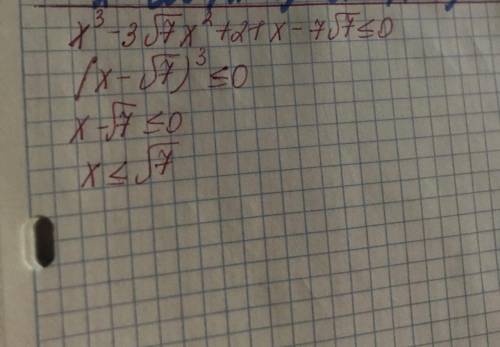 x³ - 3√7x² + 21x - 7√7 ≤ 0
(x - √7)³ ≤ 0
x - √7 ≤ 0
x ≤ √7